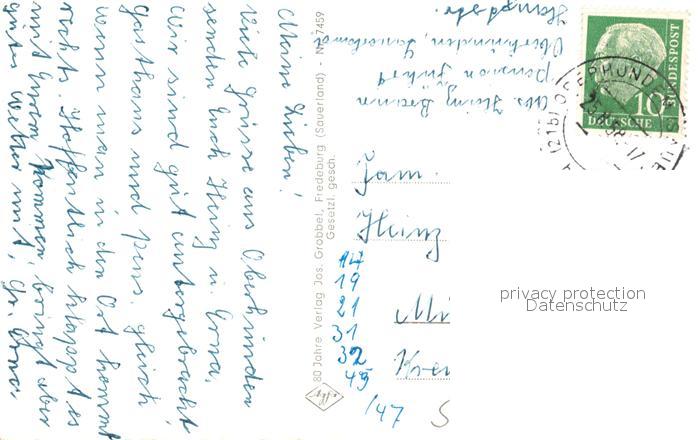 Meine Lieben!
Viele Grüsse aus Oberhunden
senden Euch Heinz u. Erna.
Wir sind gut untergebracht
Gasthaus und Pens. gleich
wenn man in den Ort kommt
rechts. Hoffentlich klappt es
mit Eurem Kommen, bringt aber
gutes Wetter mit, Gr. Erna.
80 Jahre Verlag Jos. Grobbel, Fredeburg (Sauerland) - Nr. 7459
Gesetzl. gesch.
Abs. Heinz Braun
z. Zt. Pension
Oberhunden, Sauerland
Hauptstr.
DEUTSCHE BUNDESPOST
10
(21b) OBERHUNDEM
Fam.
Heinz
Mi
Kre
S
14
19
21
31
32
45
/47
privacy protection
Datenschutz